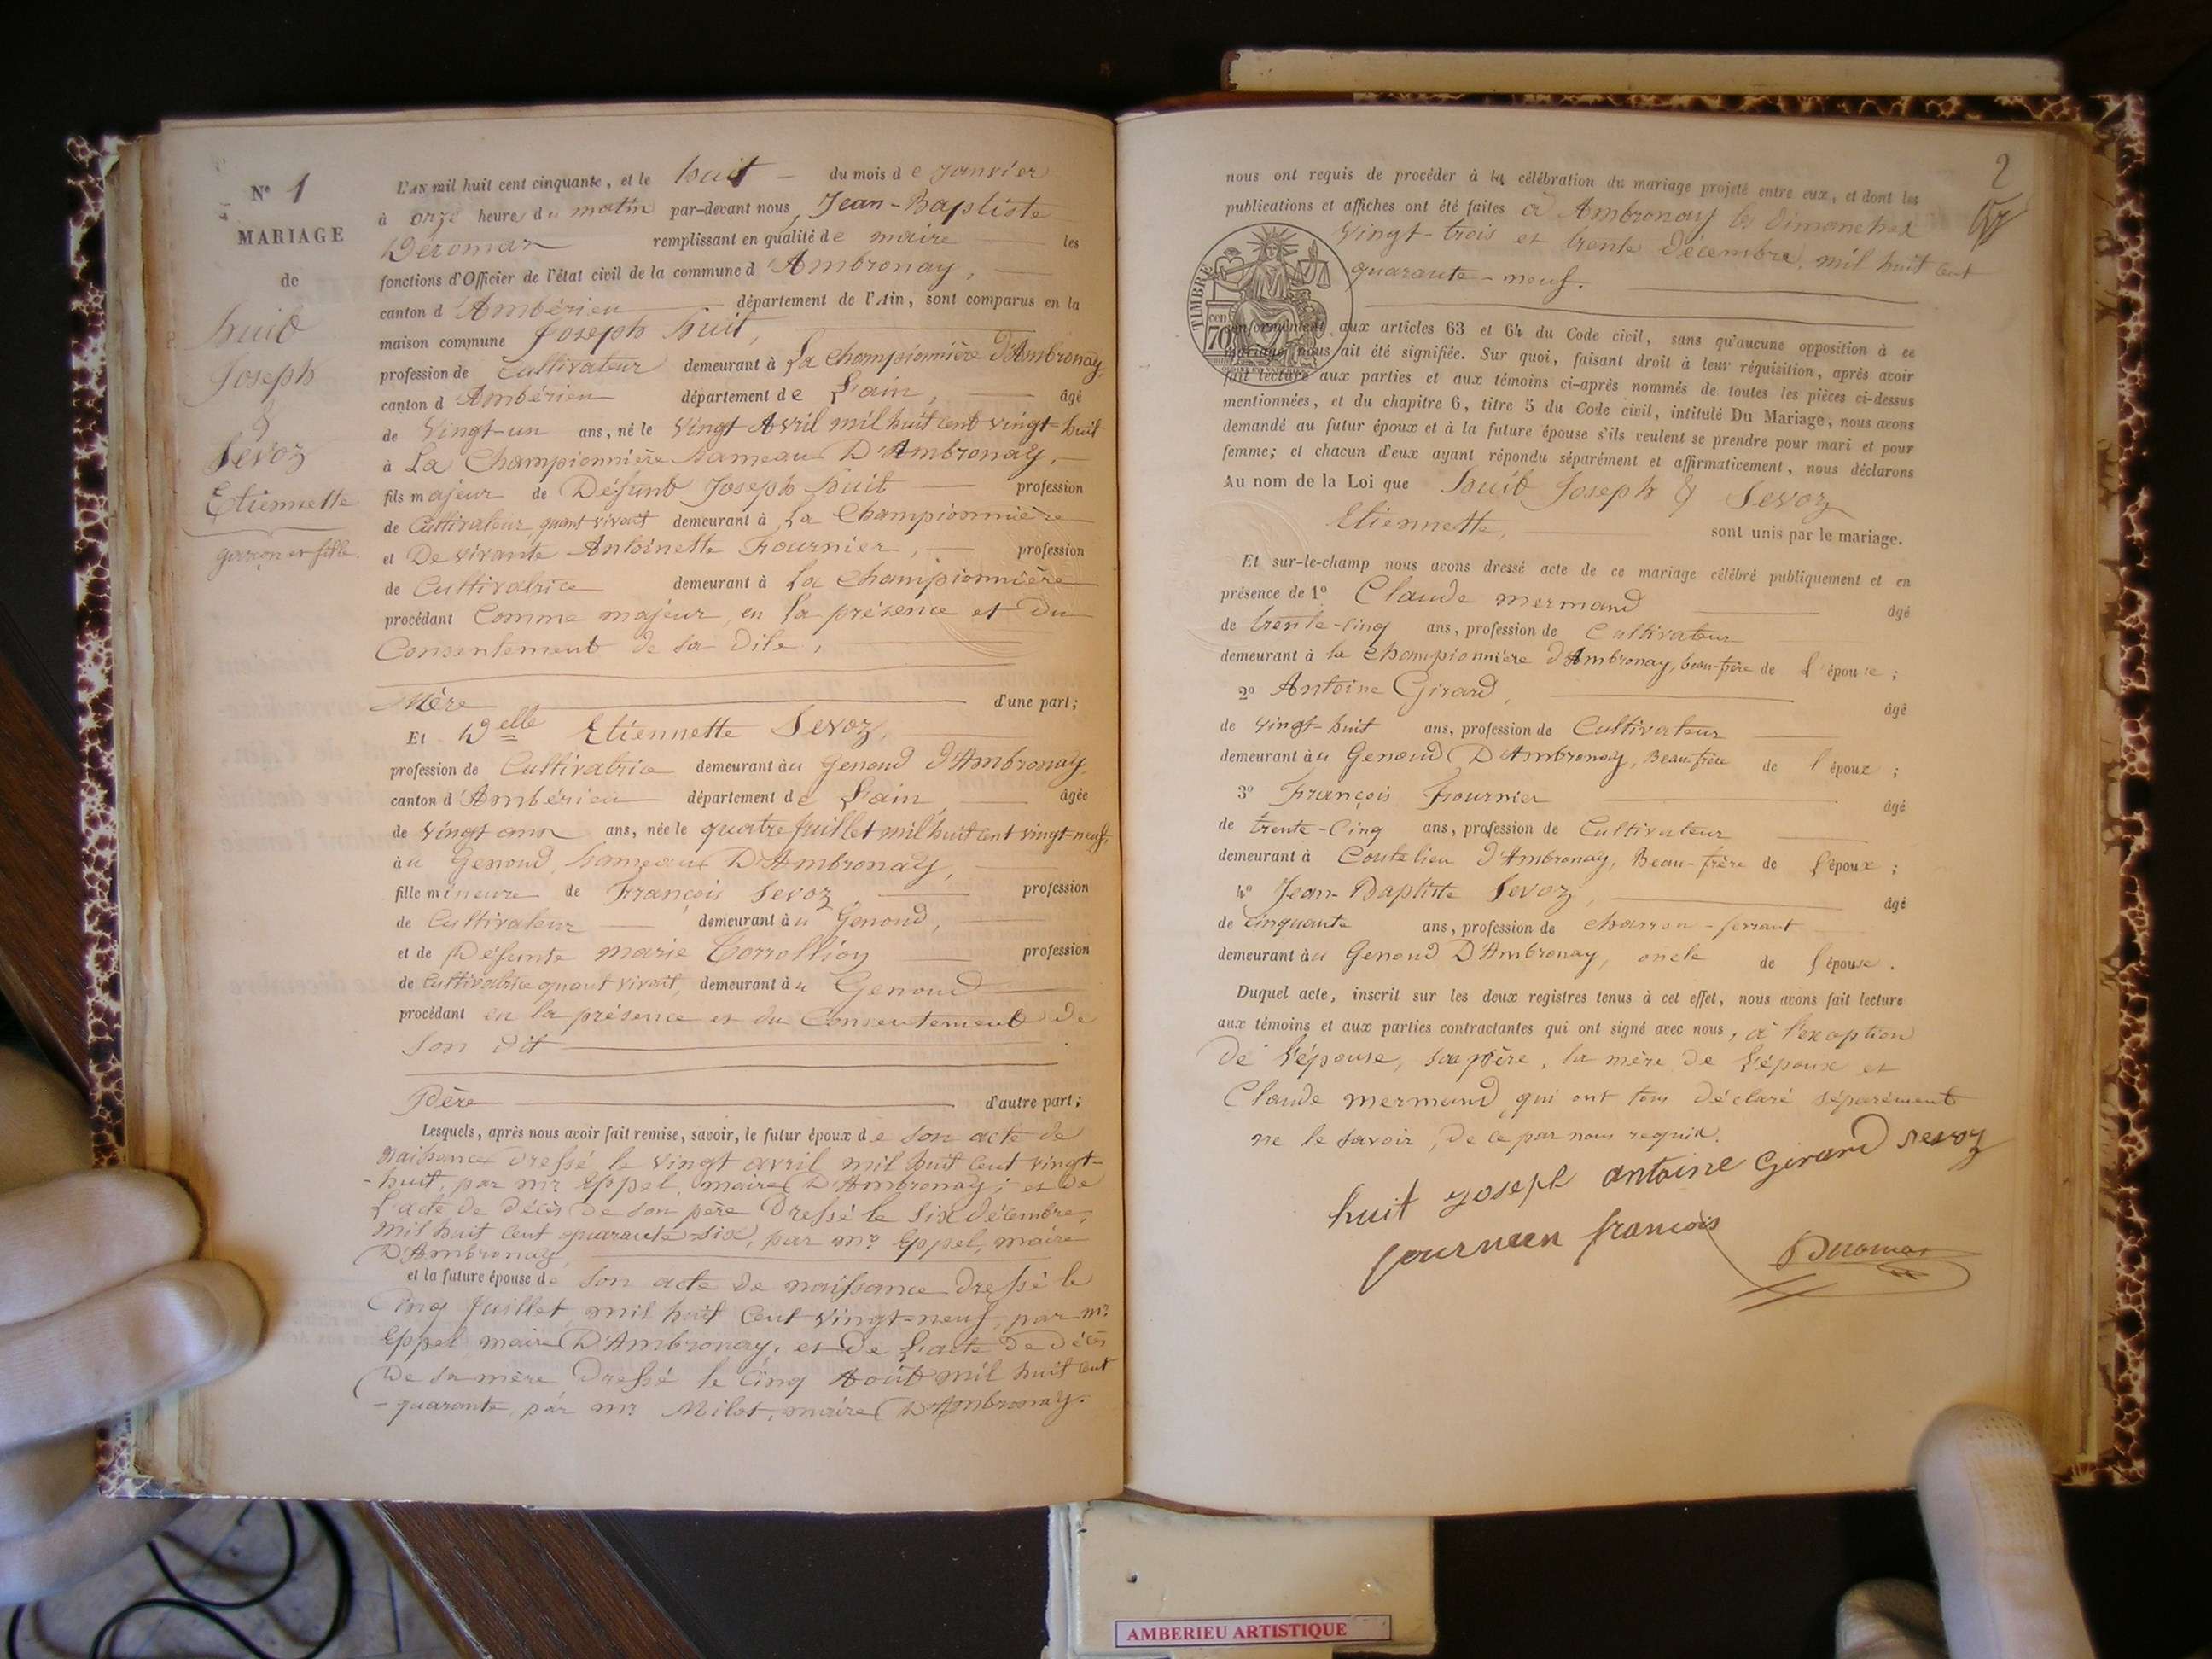 N° 1
MARIAGE
de
huit
Joseph
&
Sevoz
Etiennette
garçon et fille.
L'AN mil huit cent cinquante, et le huit du mois de Janvier
à onze heure du matin par-devant nous, Jean-Baptiste
Deromas remplissant en qualité de maire les
fonctions d'Officier de l'état civil de la commune d'Ambronay,
canton d'Ambérieu département de l'Ain, sont comparus en la
maison commune Joseph huit,
profession de Cultivateur demeurant à La Championnière d'Ambronay,
canton d'Ambérieu département de L'ain, âgé
de Vingt-un ans, né le Vingt Avril mil huit cent vingt-huit
à La Championnière hameau D'Ambronay,
fils majeur de Défunt Joseph huit profession
de Cultivateur quant vivait demeurant à La Championnière
et De vivante Antoinette Fournier, profession
de Cultivatrice demeurant à La Championnière
procédant Comme majeur, en la présence et Du
Consentement de sa Dite,
Mère d'une part;
Et Delle Etiennette Sevoz,
profession de Cultivatrice demeurant àu Genoud d'Ambronay,
canton d'Ambérieu département de L'ain, âgée
de vingt ans ans, née le quatre Juillet mil huit cent vingt-neuf,
àu Genoud, hameau D'Ambronay,
fille mineure de François Sevoz profession
de Cultivateur demeurant àu Genoud,
et de Défunte marie profession
de Cultivatrice quant vivait, demeurant àu Genoud
procédant en la présence et du Consentement de
son dit
Père d'autre part;
Lesquels, après nous avoir fait remise, savoir, le futur époux de son acte de
naissance dressé le vingt avril mil huit cent vingt-
-huit, par mr Eppel, maire D'Ambronay; et de
L'acte de décès de son père dressé le six décembre,
mil huit cent quarante six, par mr Eppel, maire
D'Ambronay,
et la future épouse de son acte de naissance dressé le
Cinq Juillet, mil huit cent vingt-neuf, par mr
Eppel maire D'Ambronay, et De L'acte De décès
De sa mère dressé le cinq Août mil huit cent
-quarante, par mr Milot, maire D'Ambronay.
2
nous ont requis de procéder à la célébration du mariage projeté entre eux, et dont les
publications et affiches ont été faites à Ambronay les Dimanches
Vingt-trois et trente décembre, mil huit cent
quarante-neuf.
TIMBRE
70 cen
conformément aux articles 63 et 64 du Code civil, sans qu'aucune opposition à ce
mariage nous ait été signifiée. Sur quoi, faisant droit à leur réquisition, après avoir
fait lecture aux parties et aux témoins ci-après nommés de toutes les pièces ci-dessus
mentionnées, et du chapitre 6, titre 5 du Code civil, intitulé Du Mariage, nous avons
demandé au futur époux et à la future épouse s'ils veulent se prendre pour mari et pour
femme; et chacun d'eux ayant répondu séparément et affirmativement, nous déclarons
Au nom de la Loi que huit Joseph & Sevoz
Etiennette, sont unis par le mariage.
Et sur-le-champ nous avons dressé acte de ce mariage célébré publiquement et en
présence de 1° Claude mermand âgé
de trente-cinq ans, profession de Cultivateur
demeurant à la Championnière d'Ambronay, beau-frère de L'épouse;
2° Antoine Girard, âgé
de vingt-huit ans, profession de Cultivateur
demeurant àu Genoud D'Ambronay, Beau-frère de l'époux;
3° François Fournier âgé
de trente-cinq ans, profession de Cultivateur
demeurant à Coutelieu d'Ambronay, Beau-frère de L'époux;
4° Jean-Baptiste Sevoz, âgé
de cinquante ans, profession de charron-ferrant
demeurant àu Genoud D'Ambronay, oncle de l'épouse.
Duquel acte, inscrit sur les deux registres tenus à cet effet, nous avons fait lecture
aux témoins et aux parties contractantes qui ont signé avec nous, à l'exception
de L'épouse, son père, la mère de L'époux et
Claude mermand qui ont tous déclaré séparément
ne le savoir, de ce par nous requis.
huit joseph antoine Girard sevoz
fournien francois Deromas
AMBERIEU ARTISTIQUE